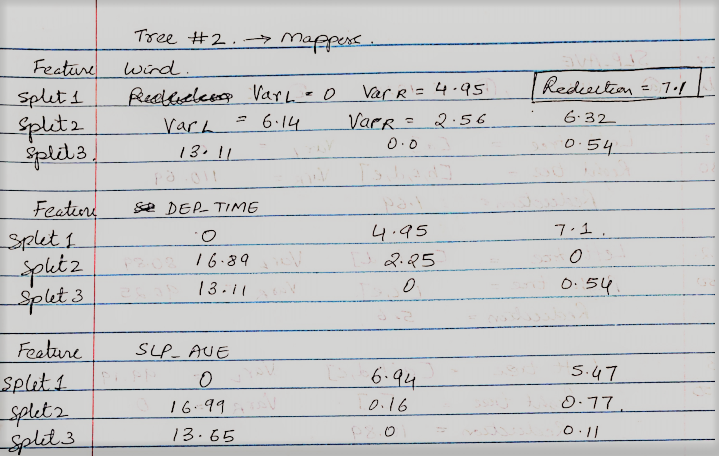 Tree #2. → Mappers.
Feature Wind.
Split 1 Var L = 0 Var R = 4.95 Reduction = 7.1
Split 2 Var L = 6.14 Var R = 2.56 6.32
Split 3. 13.11 0.0 0.54
Feature DEP_TIME
Split 1 0 4.95 7.1.
Split 2 16.89 2.25 0
Split 3 13.11 0 0.54
Feature SLP_AVE
Split 1 0 6.94 5.47
Split 2 16.99 0.16 0.77.
Split 3 13.65 0 0.11